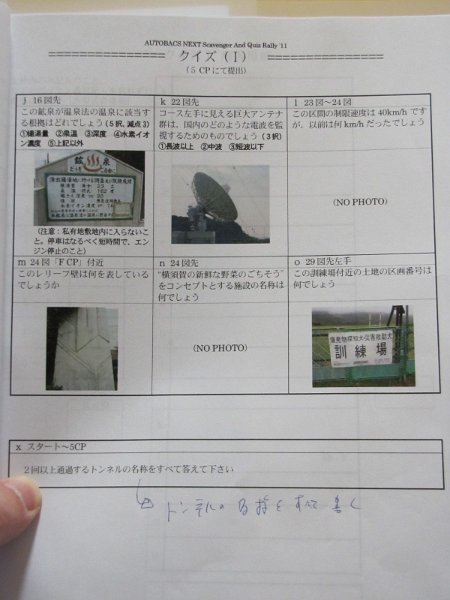 AUTOBACS NEXT Scavenger And Quiz Rally '11
クイズ（Ｉ）
（5 CPにて提出）
j 16図先
この鉱泉が温泉法の温泉に該当す
る根拠はどれでしょう（5択，減点3）
①揚湯量 ②泉温 ③深度 ④水素イオ
ン濃度 ⑤上記以外
鉱泉
（注意：私有地敷地内に入らないこ
と。停車はなるべく短時間で、エンジ
ン停止のこと）
k 22図先
コース左手に見える巨大アンテナ
群は、国内のどのような電波を監
視するためのものでしょう（3択）
①長波以上 ②中波 ③短波以下
l 23図～24図
この区間の制限速度は 40km/h です
が、以前は何 km/h だったでしょう
(NO PHOTO)
m 24図「F CP」付近
このレリーフ壁は何を表している
でしょうか
n 24図先
"横須賀の新鮮な野菜のごちそう"
をコンセプトとする施設の名称は
何でしょう
(NO PHOTO)
o 29図先左手
この訓練場付近の土地の区画番号は
何でしょう
訓練場
x スタート～5CP
2回以上通過するトンネルの名称をすべて答えて下さい
トンネルの名称をすべて書く